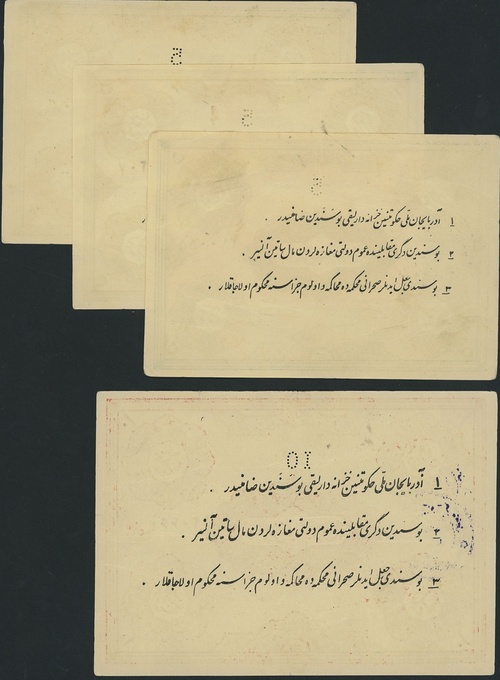 5
5
5
۱ آذربایجان ملی حکومتنین خزانه داریلقی بو سندین ضامنیدر .
۲ بو سندین دگری مقابلینده عموم دولتی مغازه لردن مال ساتین آلنیر .
۳ بو سندی جعل ایدنلر صحرائی محکمه ده محاکمه و اولوم جزاسنه محکوم اولاجاقلار .
10
۱ آذربایجان ملی حکومتنین خزانه داریلقی بو سندین ضامنیدر .
۲ بو سندین دگری مقابلینده عموم دولتی مغازه لردن مال ساتین آلنیر .
۳ بو سندی جعل ایدنلر صحرائی محکمه ده محاکمه و اولوم جزاسنه محکوم اولاجاقلار .